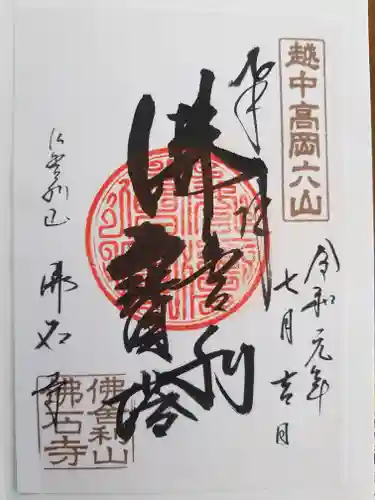 越中高岡六山
奉拝
令和元年
七月吉日
佛舎利
寳塔
仏舎利山
佛石寺
佛舎利山
佛石寺